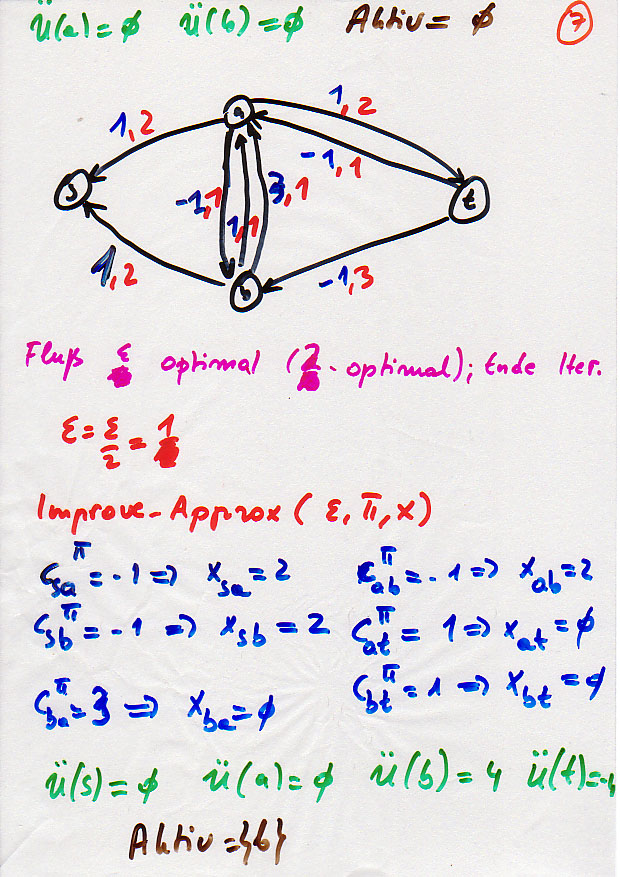 ü(a)=ϕ ü(b)=ϕ Aktiv=ϕ 7
1,2 a 1,2
-1,1
s -1,1 1,1 3,1 t
1,2 b -1,3
Fluß ε optimal (2 - optimal); Ende Iter.
ε = ε/2 = 1
Improve-Approx (ε, π, x)
c_sa^π = -1 ⇒ x_sa = 2 c_ab^π = -1 ⇒ x_ab = 2
c_sb^π = -1 ⇒ x_sb = 2 c_at^π = 1 ⇒ x_at = ϕ
c_ba^π = 3 ⇒ x_ba = ϕ c_bt^π = 1 ⇒ x_bt = ϕ
ü(s)=ϕ ü(a)=ϕ ü(b)=4 ü(t)=-4
Aktiv={b}